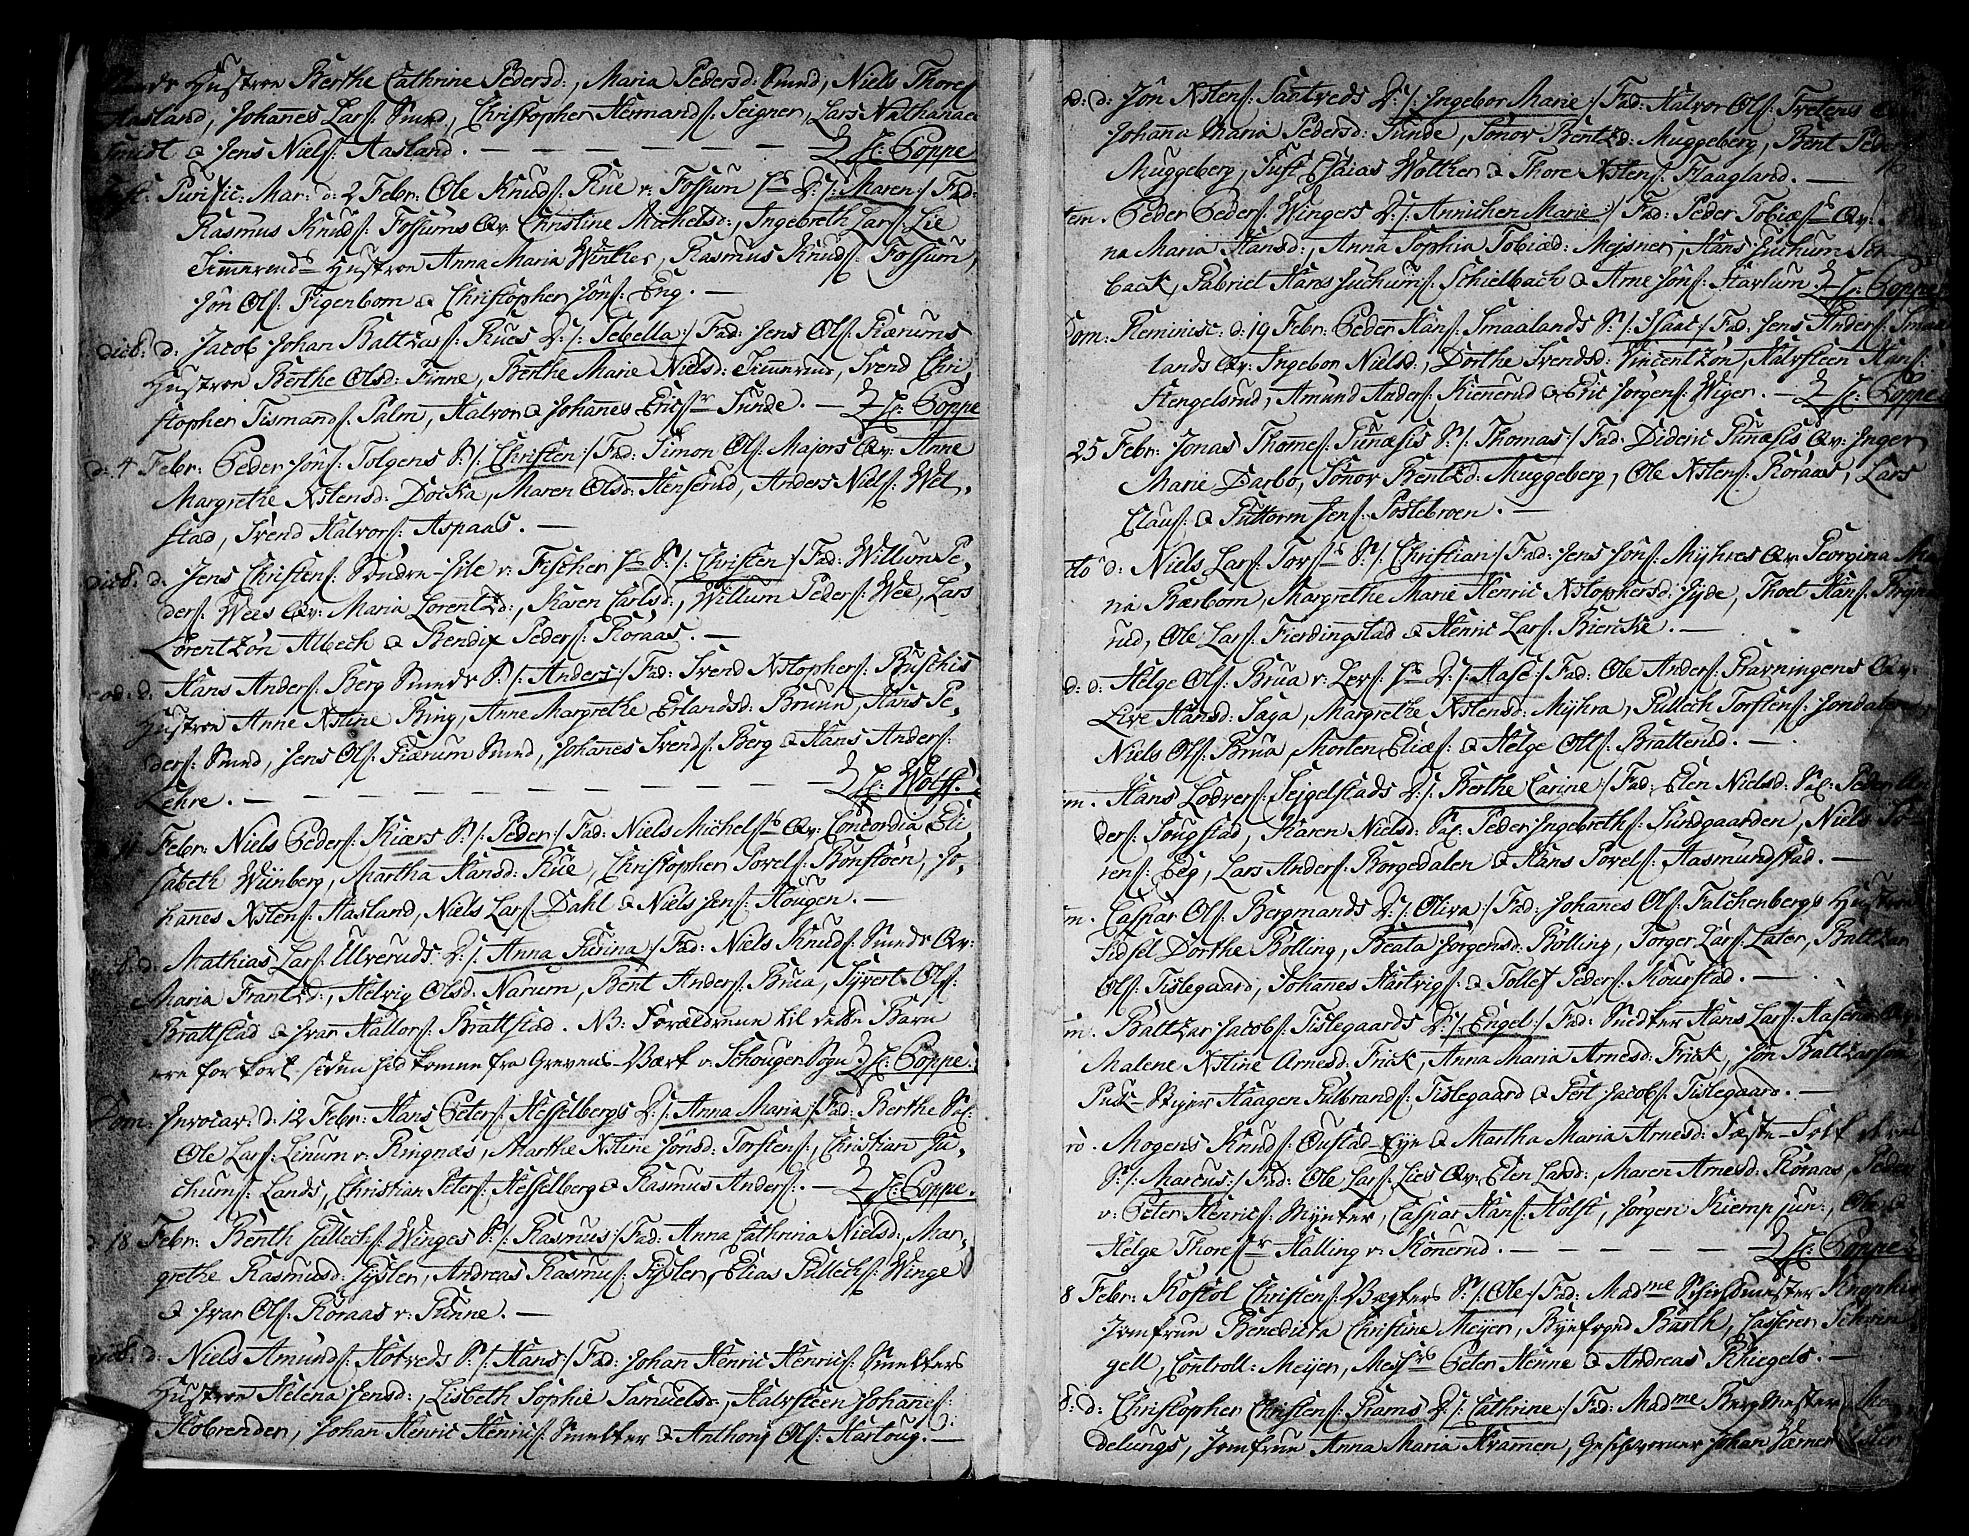 Hustroe Berthe Cathrine Pedersd:, Maria Pedersd: Smed, Niels Thores
Aasland, Johanes Lars: Smed, Christopher Hermands: Seigner, Lars Nathanael
Knudt & Jens Niels: Aasland. — Sc: Coppe
Purific: Mar: d: 2 Febr: Ole Knuds: Rue v: Fossum D: /: Maren :/ Fad:
Rasmus Knuds: Fossums Qv: Christine Michelsd:, Ingebreth Lars: Lie
Hustroe Anna Maria Winther, Rasmus Knuds: Fossum,
Jôn Ols: Figenbom & Christopher Jôns: Eng. —
d: Jacob Johan Baltzars: Rues D: /: Sebella :/ Fad: Jens Ols: Kiærums
Hustroe Berthe Olsd: Finne, Berthe Marie Nielsd: Simerud, Svend Chri,
stopher Tismands: Palm, Halvor & Johanes Erics: Funde. — Sc: Coppe
d: 4 Febr: Peder Jôns: Tolgens S: /: Christen :/ Fad: Simon Ols: Majors Qv: Anne
Margrethe Xstensd: Docka, Maren Olsd: Henserud, Anders Niels: Wel,
stad, Svend Halvors: Aspaas. —
d: Jens Christens: Søndre-Jite v: Fischer S: /: Christen :/ Fad: Willum Pe,
ders: Wees Qv: Maria Lorentzd:, Karen Carlsd:, Willum Peders: Wee, Lars
Lorentzôn Albech & Bendix Peders: Koraas. —
d: Hans Anders: Berg Smeds S: /: Anders :/ Fad: Svend Xstophers: Buschis
Hustroe Anne Xstine Bing, Anne Margrethe Erlandsd: Bruun, Hans Pe,
ders: Smed, Jens Ols: Kiærum Smed, Johanes Svends: Berg & Hans Anders:
Lehre. — Sc: Wolff.
11 Febr: Niels Peders: Kiærs S: /: Peder :/ Fad: Niels Michels: Qv: Concordia Eli,
sabeth Wiinberg, Martha Hansd: Rue, Christopher Povels: Bonstoen, Jo,
hanes Xstens: Aasland, Niels Lars: Dahl & Niels Jens: Hougen. —
d: Mathias Lars: Ulveruds D: /: Anna Furina :/ Fad: Niels Knuds: Smeds Qv:
Maria Frantzd:, Helvig Olsd: Narum, Bent Anders: Brua, Syvert Ols:
Brattstad & Ivar Hallors: Brattstad. NB: Forældrene til dette Barn
ere for kort siden hid komne fra Grevens-Værk v: Schouger Sogn. Sc: Coppe.
Dom: Invocav: d: 12 Febr: Hans Peters: Hesselbergs D: /: Anna Maria :/ Fad: Berthe Sal:
Ole Lars: Linum v: Ringnæs, Marthe Xstine Jônsd: Torstens:, Christian Ja,
chums: Lands, Christian Peters: Hesselberg & Rasmus Anders:. — Sc: Coppe.
d: 18 Febr: Benth Gullechs: Winges S: /: Rasmus :/ Fad: Anna Cathrina Nielsd:, Mar,
grethe Rasmusd: Fysler, Andreas Rasmus: Fysler, Elias Gullechs: Winge
& Ivar Ols: Koraas v: Gunne. —
d: Niels Amunds: Hotveds S: /: Hans :/ Fad: Johan Henric Henrics: Smelters
Hustroe Helena Jensd:, Lisbeth Sophie Samuelsd:, Halvsteen Johanes:
Kobrender, Johan Henric Henrics: Smelter & Anthony Ols: Hartoug. —
d: d: Jôn Xstens: Santveds D: /: Ingebor Marie :/ Fad: Halvor Ols: Tretens Qv:
Johana Maria Pedersd: Funde, Sônor Bentzd: Muggeberg, Bent Peders:
Muggeberg, Just Esaias Wolther & Thore Xstens: Flaagland. —
Peder Peders: Wingers D: /: Annichen Marie :/ Fad: Peder Tobiæs: Qv:
na Maria Hansd:, Anna Sophia Tobiæd: Mejsner, Hans Juchum
back, Gabriel Hans Juchums: Schielbach & Arne Jôns: Stavlum. Sc: Coppe
Dom: Reminisc: d: 19 Febr: Peder Hans: Smaalands S: /: Isaac :/ Fad: Jens Anders: Smaa
lands Qv: Ingebor Nielsd:, Dorthe Svendsd: Vincentzôn, Halvsteen Hans:
Stengelsrud, Amund Anders: Kienerud & Eric Jôrgens: Wiger. — Sc: Coppe.
25 Febr: Jonas Thomes: Gunæsis S: /: Thomas :/ Fad: Dideric Gunæsis Qv: Inger
Marie Darbo, Sônor Bentzd: Muggeberg, Ole Xstens: Koraas, Lars
Claus: & Guttorm Jens: Postebroen. —
d: Niels Lars: Tors: S: /: Christian :/ Fad: Jens Jôns: Myhres Qv: Georgina Ma
ria Bærbom, Margrethe Marie Henric Xstophersd: Jyde, Thoel Hans:
rud, Ole Lars: Fierdingstad & Henric Lars: Biencke. —
d: d: Helge Ols: Brua v: Lev: D: /: Aase :/ Fad: Ole Anders: Gravningens Qv:
Live Hansd: Saga, Margrethe Xstensd: Myhra, Gullech Torstens: Jondalen
Niels Ols: Brua, Morten Eliæs: & Helge Olls: Bratterud. —
Hans Lodvers: Sejgelstads D: /: Berthe Carine :/ Fad: Elen Nielsd: Sal: Peder
ders: Tougstad, Karen Nielsd: Sal: Peder Ingebreths: Sundgaarden, Niels Sô-
rens: Eeg, Lars Anders: Borgedalen & Hans Povels: Aasmundstad. —
Caspar Ols: Bergmands D: /: Oliva :/ Fad: Johanes Ols: Falchenbergs Hustroe
Sidsel Dorthe Bôlling, Beata Jorgensd: Bôlling, Torger Lars: Later, Baltzar
Ols: Tislegaard, Johanes Hartvigs: & Tollef Peders: Kourstad. —
Baltzar Jacobs: Tislegaards D: /: Engel :/ Fad: Snedker Hans Lars: Hasens
Malene Xstine Arnesd: Frick, Anna Maria Arnesd: Frick, Jôn Baltzarsôn
Puck-Stiger Haagen Gulbrands: Tislegaard & Pert Jacobs: Tislegaard. —
Mogens Knuds: Oustad-Eye & Martha Maria Arnesd: Fæste-Folk deres
S: /: Marcus :/ Fad: Ole Lars: Lies Qv: Elen Larsd:, Maren Arnesd: Koraas, Peder
v: Peter Henrics: Mynter, Caspar Hans: Holst, Jôrgen Kiemp jun:, Ole &
Helge Thores: Halling v: Konerud. — Sc: Coppe.
8 Febr: Kostol Christens: Vægters S: /: Ole :/ Fad: Madme Schichtmester Knophs
Jomfrue Benedicta Christine Meijer, Byefoged Barth, Casserer Schwen
gell, Controll: Meijer, Mess: Peter Henne & Andreas Rhiegels. —
8: d: Christopher Christens: Grams D: /: Cathrine :/ Fad: Madme Bergmester
delungs, Jomfrue Anna Maria Kramer, Geschworner Johan Hæmer